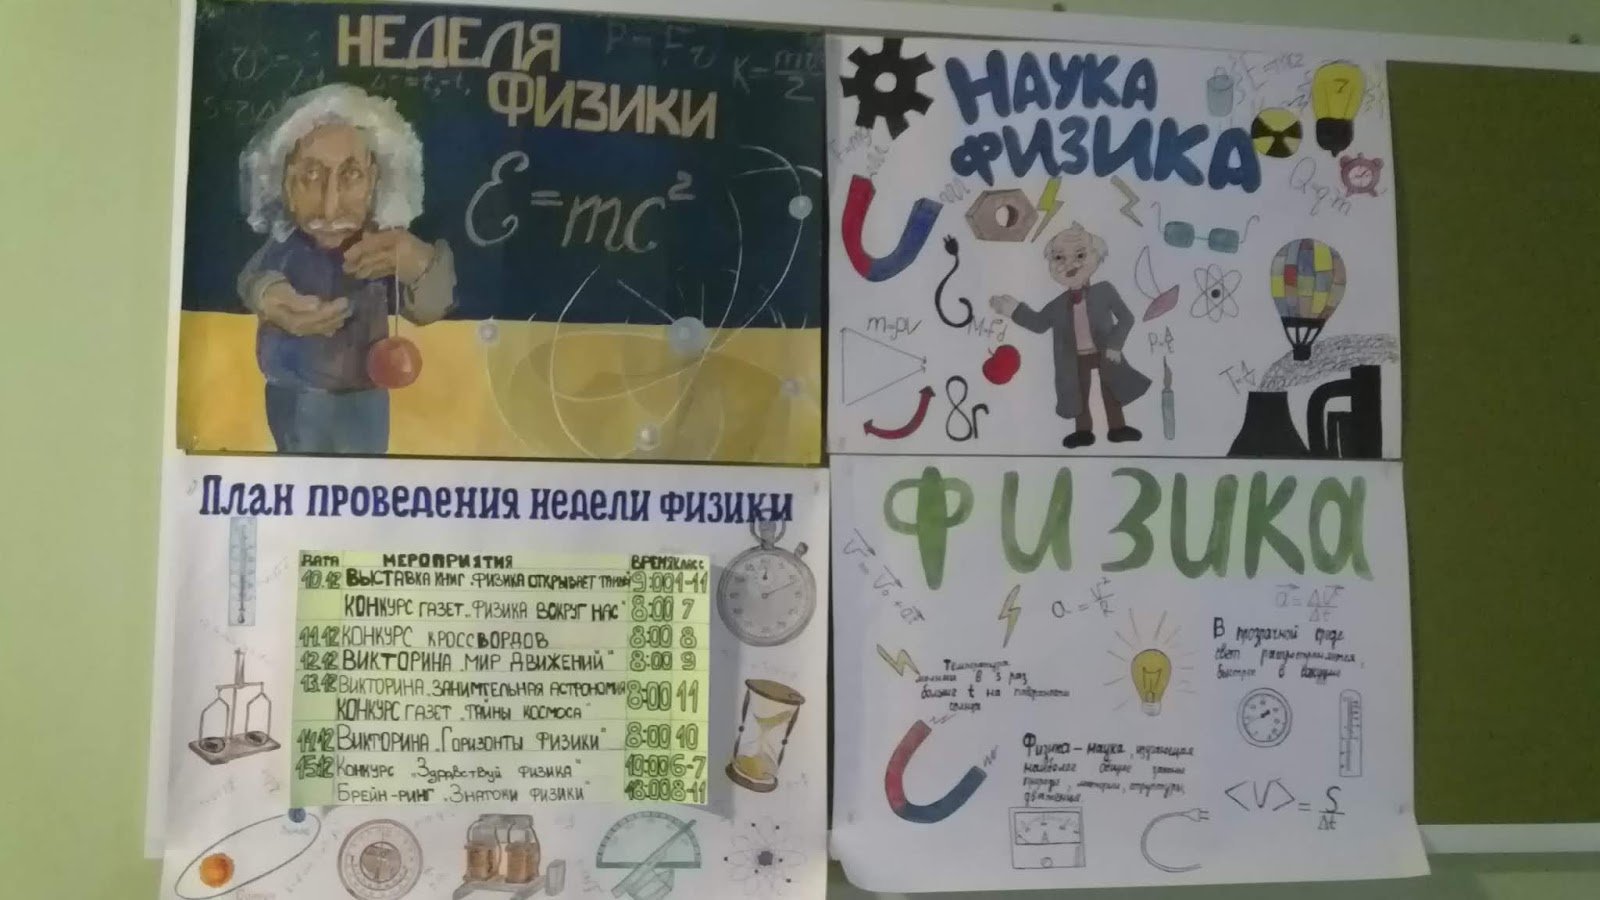 НЕДЕЛЯ
ФИЗИКИ
P=Fv
K=mv²/2
E=mc²
НАУКА
ФИЗИКА
F=mg
E=mc²
Q=qm
m=ρV
M=Fd
8г
План проведения недели физики
ДАТА МЕРОПРИЯТИЯ ВРЕМЯ КЛАСС
10.12 ВЫСТАВКА КНИГ „ФИЗИКА ОТКРЫВАЕТ ТАЙНЫ" 9:00 1-11
КОНКУРС ГАЗЕТ „ФИЗИКА ВОКРУГ НАС" 8:00 7
11.12 КОНКУРС КРОССВОРДОВ 8:00 8
12.12 ВИКТОРИНА „МИР ДВИЖЕНИЙ" 8:00 9
13.12 ВИКТОРИНА „ЗАНИМТЕЛЬНАЯ АСТРОНОМИЯ 8:00 11
КОНКУРС ГАЗЕТ „ТАЙНЫ КОСМОСА"
14.12 ВИКТОРИНА „ГОРИЗОНТЫ ФИЗИКИ" 8:00 10
15.12 КОНКУРС „ЗДРАВСТВУЙ ФИЗИКА" 10:00 6-7
БРЕЙН-РИНГ „ЗНАТОКИ ФИЗИКИ" 18:00 8-11
ФИЗИКА
a=v²/R
a=Δv/Δt
Температура
молнии в 5 раз
больше t на поверхности
солнца
В прозрачной среде
свет распространяется,
быстрее в вакууме
Физика – наука, изучающая
наиболее общие законы
природы, материи, структуры,
движения.
A
<V>=S/Δt